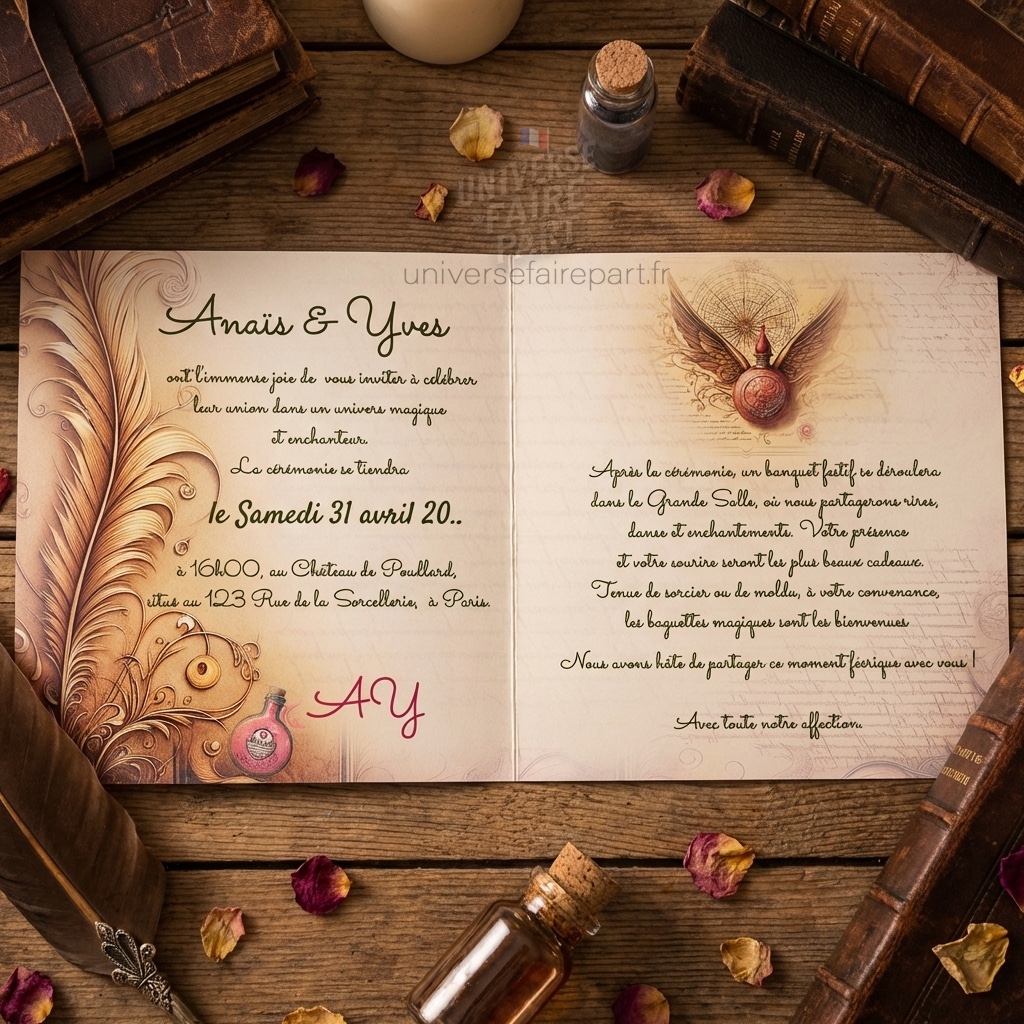 UNIVERSE
FAIRE
PART
universefairepart.fr
Anaïs & Yves
ont l'immense joie de vous inviter à célébrer
leur union dans un univers magique
et enchanteur.
La cérémonie se tiendra
le Samedi 31 avril 20..
à 16h00, au Château de Poudlard,
situé au 123 Rue de la Sorcellerie, à Paris.
AY
Après la cérémonie, un banquet festif se déroulera
dans la Grande Salle, où nous partagerons rires,
danse et enchantements. Votre présence
et votre sourire seront les plus beaux cadeaux.
Tenue de sorcier ou de moldu, à votre convenance,
les baguettes magiques sont les bienvenues
Nous avons hâte de partager ce moment féerique avec vous !
Avec toute notre affection.